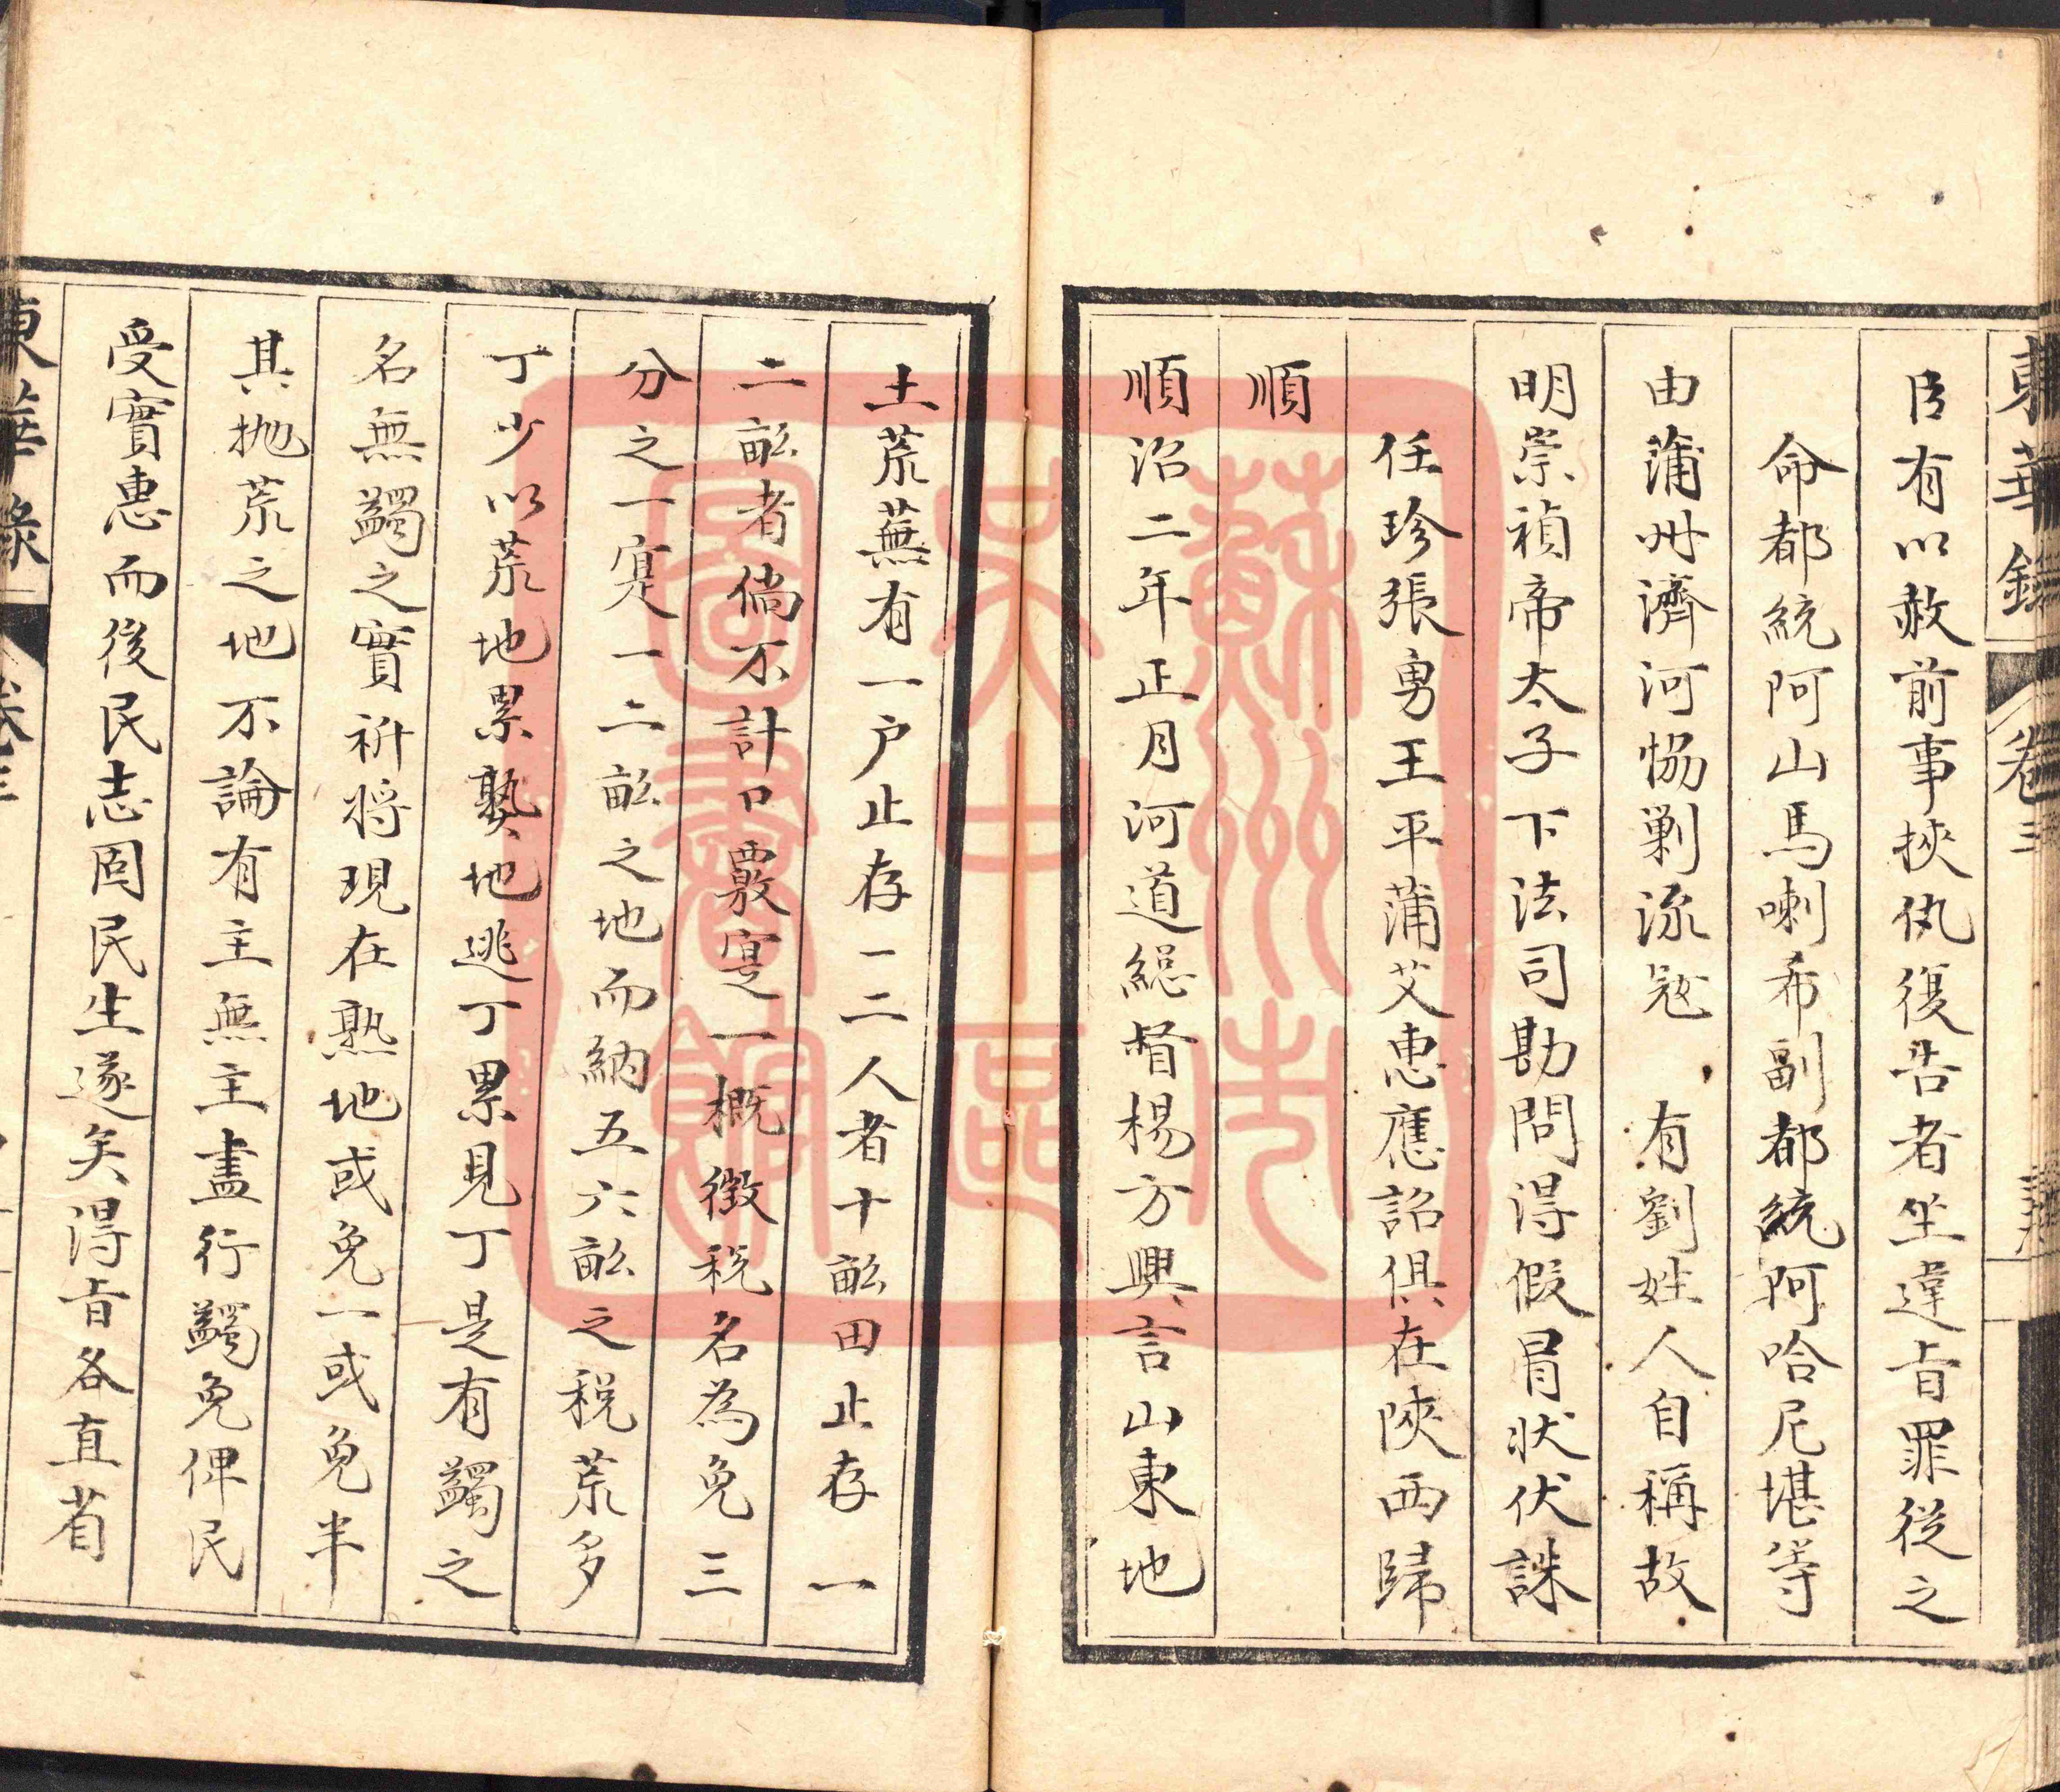 東華錄 卷三
臣有以赦前事挾仇復告者坐違旨罪從之
命都統阿山馬喇希副都統阿哈尼堪等
由蒲州濟河恊剿流寇 有劉姓人自稱故
明崇禎帝太子下法司勘問得假冒狀伏誅
任珍張勇王平蒲艾惠應詔俱在陝西歸
順
順治二年正月河道總督楊方興言山東地
土荒蕪有一户止存一二人者十畝田止存一
二畝者倘不計口覈寔一概徵稅名為免三
分之一寔一二畝之地而納五六畝之稅荒多
丁少以荒地累熟地逃丁累見丁是有蠲之
名無蠲之實祈將現在熟地或免一或免半
其抛荒之地不論有主無主盡行蠲免俾民
受實惠而後民志固民生遂矣得旨各直省
東華錄 卷三
蘇州市
吳中區
圖書館